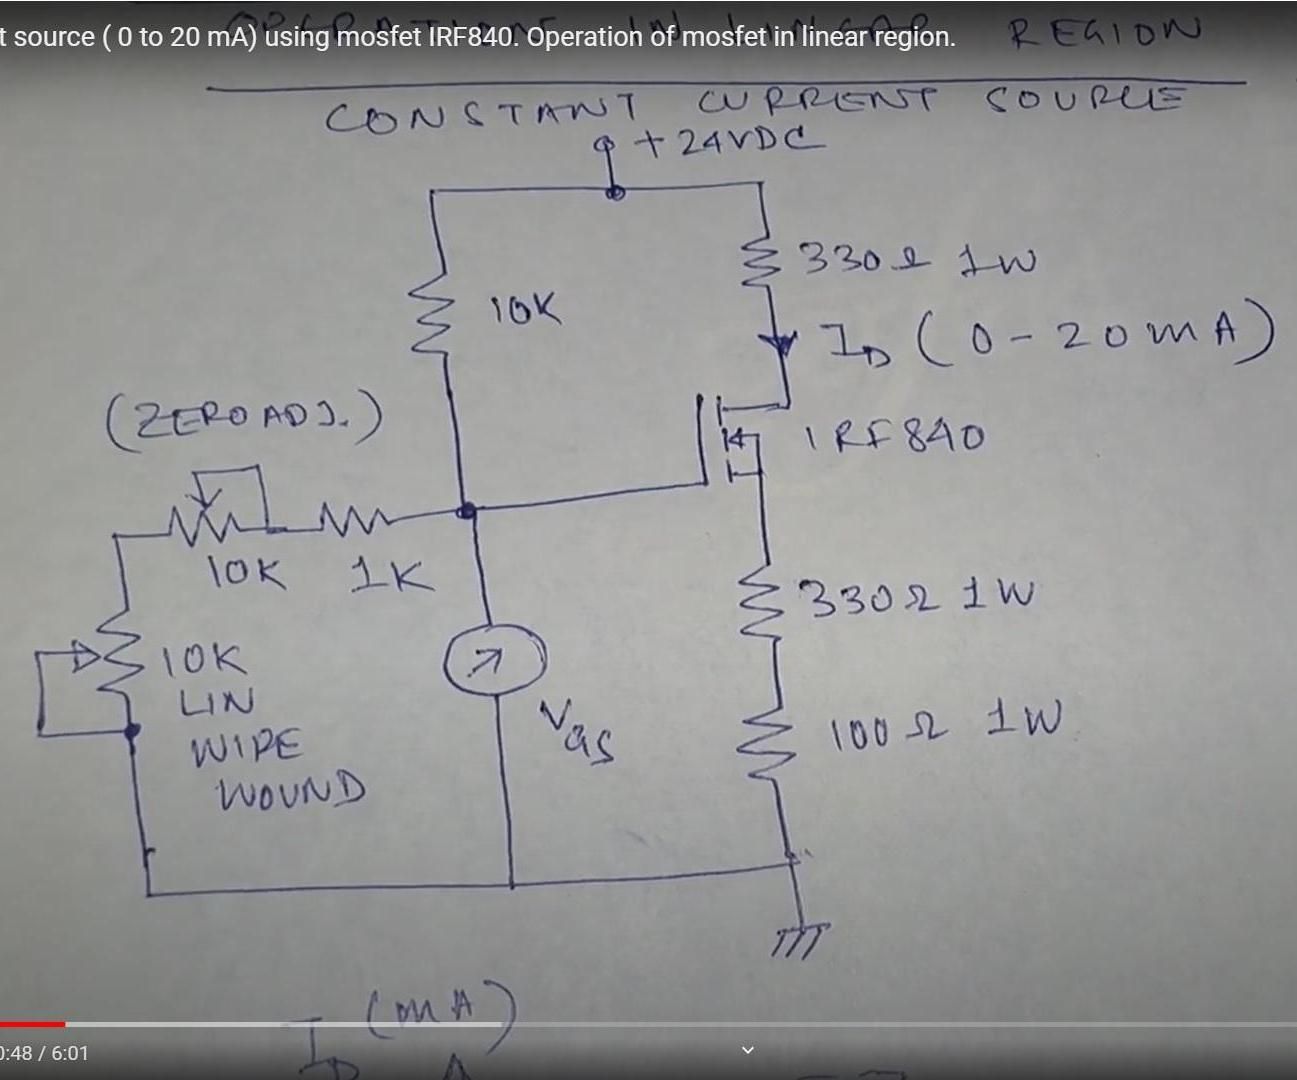 t source ( 0 to 20 mA) using mosfet IRF840. Operation of mosfet in linear region.
REGION
CONSTANT CURRENT SOURCE
+24VDC
330Ω 1W
10K
ID (0-20mA)
(ZERO ADJ.)
IRF840
10K 1K
330Ω 1W
10K
LIN
WIRE
WOUND
VGS
100Ω 1W
ID (mA)
0:48 / 6:01